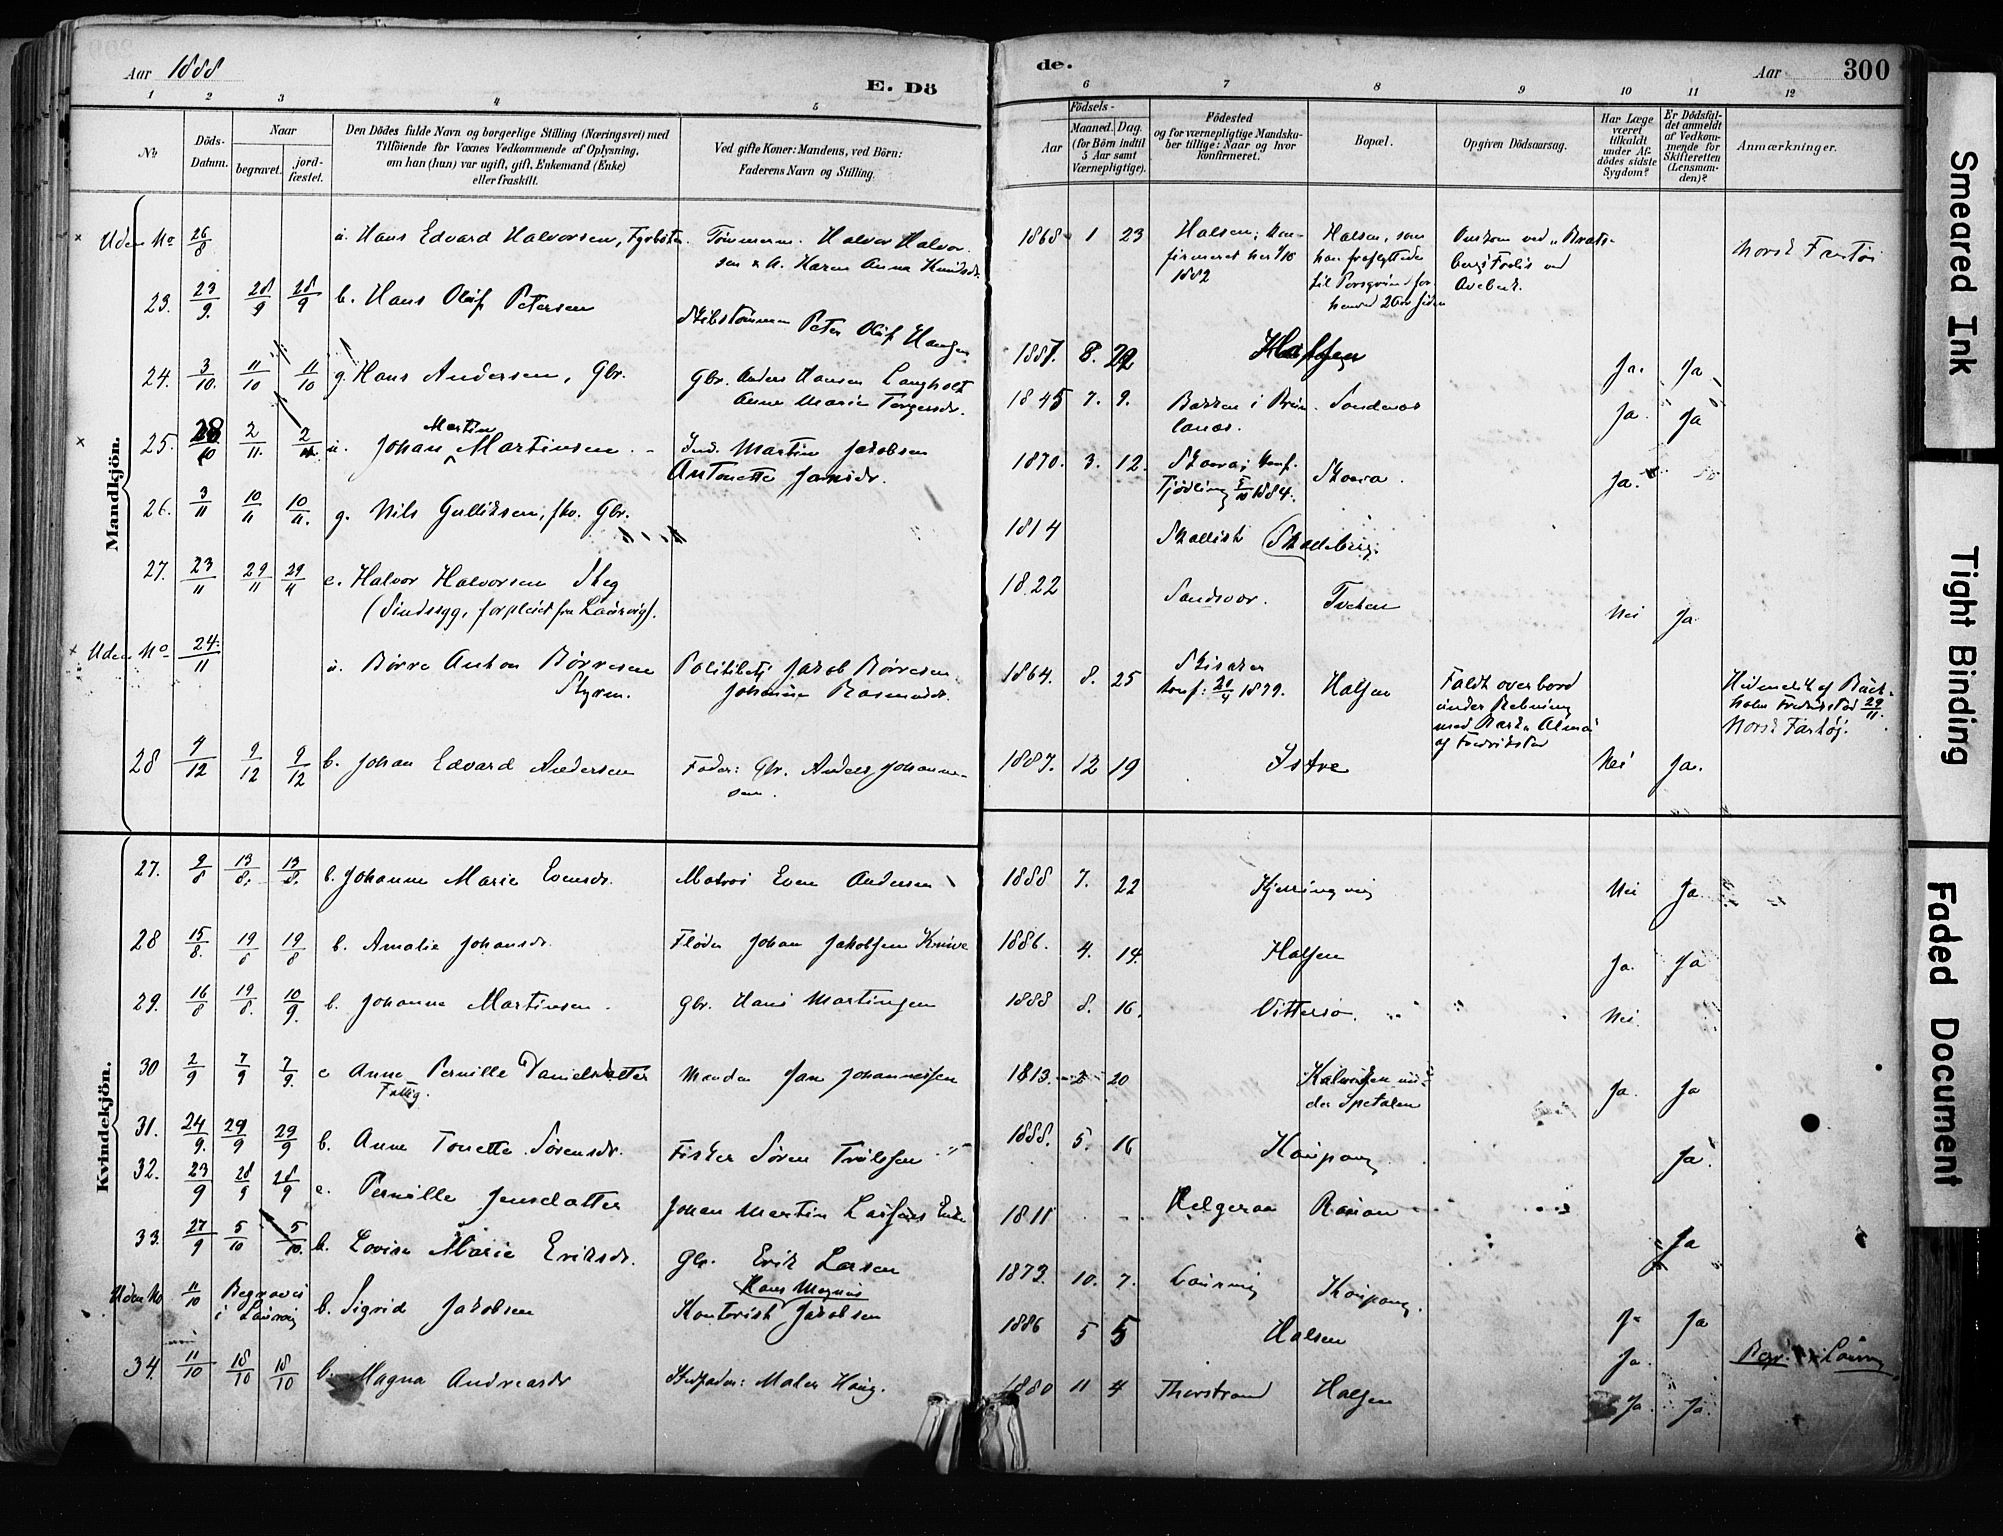 Aar 1888
E. Dö
de.
Aar 300
1 2 3 4 5 6 7 8 9 10 11 12
No
Döds-Datum.
Naar
begravet.
jord-fæstet.
Den Dödes fulde Navn og borgerlige Stilling (Næringsvei) med
Tilföiende for Voxnes Vedkommende af Oplysning,
om han (hun) var ugift, gift, Enkemand (Enke)
eller fraskilt.
Ved gifte Koner: Mandens, ved Börn:
Faderens Navn og Stilling.
Födsels-
Aar
Maaned. Dag.
(for Börn indtil
5 Aar samt
Værnepligtige).
Födested
og for værnepligtige Mandska-
ber tillige: Naar og hvor
konfirmeret.
Bopæl.
Opgiven Dödsaarsag.
Har Læge
været
tilkaldt
under Af-
dödes sidste
Sygdom?
Er Dödsfal-
det anmeldt
af Vedkom-
mende for
Skifteretten
(Lensman-
den)?
Anmærkninger.
Mandkjön.
Uden No 26/8 u. Hans Edvard Halvorsen, Fyrböter Tömmerm. Halvor Halvor- 1868 1 23 Halsen; kon- Halsen, som Omkom ved "Brats- Norsk Fartöi
sen & A. Karen Anna Knudsdr. firmeret her 1/10 han fraflyttede bergs Forlis ved
1882 til Porsgrund for
henved 2 Aar siden
23. 23/9. 28/9 28/9 b. Hans Oluf Petersen Skibstömmerm Peter Oluf Hansen 1887. 8. 22 Halsen Ja. Ja
24. 3/10. 11/10 11/10 g. Hans Andersen, Gbr. Gbr. Anders Hansen Langholt 1845 7. 9. Bakken i Brun- Sondenas Ja. Ja
Anne Marie Torgersdr. lanæs.
25. 28/10 2/11. 2/11 u. Johan Martin Martinsen Ind. Martin Jakobsen 1870. 3. 12. Skaara; konf. Skaara. Ja.
Antonette Jansdr. Tjödling 5/10 1884.
26. 3/11 10/11 10/11. g. Nils Gulliksen, fhv. Gbr. 1814 Skallist Skalleberg.
27. 23/11 29/11 29/11 e. Halvor Halvorsen Skeg 1822 Sandsvær. Tveten Nei Ja.
(Sindssyg, forpleiet fra Laurvig).
Uden No 24/11 u. Börre Anton Börresen Politibetj Jakob Börresen 1864. 8. 25 Halsen Faldt overbord
Styrm. Johanne Rasmusdr. konf. 20/4 1879. under Rebning
med Bark. Alma
af Fredrikstad
Fredrikstad 29/11.
Norsk Fartöj.
28 4/12 9/12 9/12 b. Johan Edvard Andersen Fader: Gbr. Anders Johanne- 1887. 12 19 Istre Nei Ja.
sen.
Kvindekjön.
27. 9/8 13/8. 13/8. b. Johanne Marie Evensdr. Matros Even Andersen 1888 7. 22 Kjerringvig Nei Ja.
28 15/8. 19/8 19/8 b. Amalie Johansdr. Fløder Johan Jakobsen 1886. 4. 14. Halsen Ja. Ja
29. 16/8 19/8. 10/9. b. Johanne Martinsen. Gbr. Hans Martinsen 1888 8. 16. Vittersö. Nei.
30 2/9 7/9 7/9. e Anne Pernille Danielsdatter Manden Jan Johannessen 1813. 20 Ja. Ja
Fattig. Spetalen
31. 24/9. 29/9 29/9 b. Anne Tonette Sörensdr. Fisker Sören Trulssen 1888. 5. 16 Kaupang Ja.
32. 23/9 28/9 28/9 e. Pernille Jensdatter Johan Martin Larsens Enke 1811 Helgeraa Ja
33. 27/9 5/10 5/10. b. Lovise Marie Eriksdr. Gbr. Erik Larsen 1879. 10. 7. Laurvig Kaupang. Ja Ja
Uden No 11/10 Begravet b. Sigrid Jakobsen Hans Magnus 1886 5 5 Halsen Ja. Begr. i Laurvig
i Laurvig Kontorist Jakobsen
34. 11/10 18/10 18/10 b. Magna Andreasdr Stedfader: Maler Haug. 1880 11 4 Thorstrand Halsen Ja. Ja.
Smeared Ink
Tight Binding
Faded Document